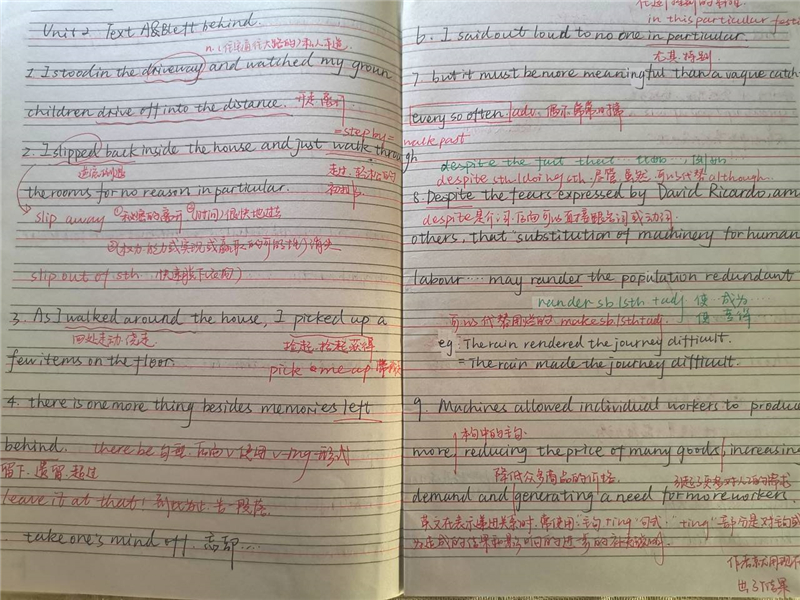 Unit 2 Text A&B left behind.
n.(住宅通往大路的)私人车道
1. I stood in the driveway and watched my grown
children drive off into the distance. 开走 离开
=step by=
2. I slipped back inside the house and just walk through
the rooms for no reason in particular.
slip away ①秘密的离开 ②(时间)很快地过去
slip out of sth 快速脱下(衣服)
3. As I walked around the house, I picked up a
四处走动 绕走
few items on the floor.
pick me up
4. there is one more thing besides memories left
behind. there be 句型 后面v使用v-ing形式
留下.遗留.超过
leave it at that: 到此为止 告一段落
take one's mind off. 忘却...
in this particular
6. I said out loud to no one in particular.
尤其 特别
7. but it must be more meaningful than a vague catch
every so often. adv. 偶尔
walk past
despite the fact that
despite sth/doing sth. 尽管 虽然 可以代替although
8. Despite the fears expressed by David Ricardo, am
despite是介词.后面可以直接跟名词或动词.
others, that "substitution of machinery for human
labour... may rander the population redundant
rander sb/sth + adj 使 成为
可以代替用烂的 make sb/sth + adj 使 变得
eg: The rain rendered the journey difficult.
= The rain made the journey difficult.
9. Machines allowed individual workers to produc
本句中的主句
more reducing the price of many goods, increasing
降低众多商品的价格.
demand and generating a need for more workers.
英文在表示递进关系时,常使用:主句+ing句式.
也写了结果